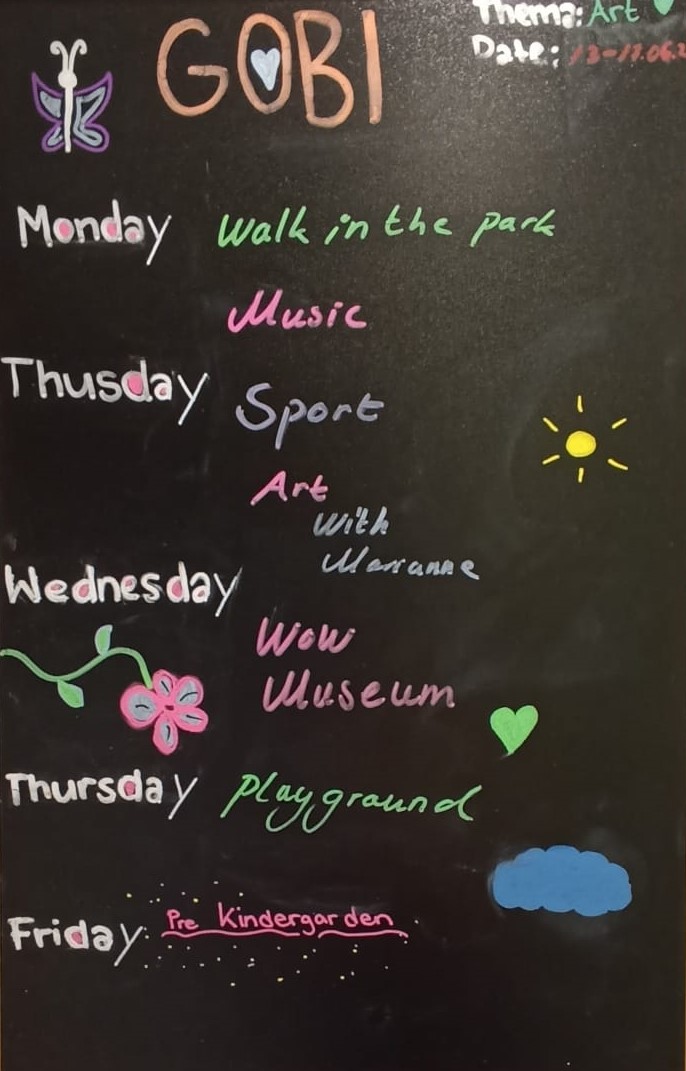 GOBI
Thema: Art
Date: 13-17.06.2
Monday Walk in the park
Music
Thusday Sport
Art
With
Marianne
Wednesday
Wow
Museum
Thursday Playground
Friday: Pre Kindergarden